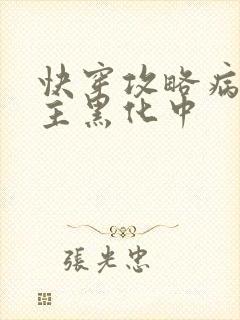 快穿攻略病
主黑化中
張光忠